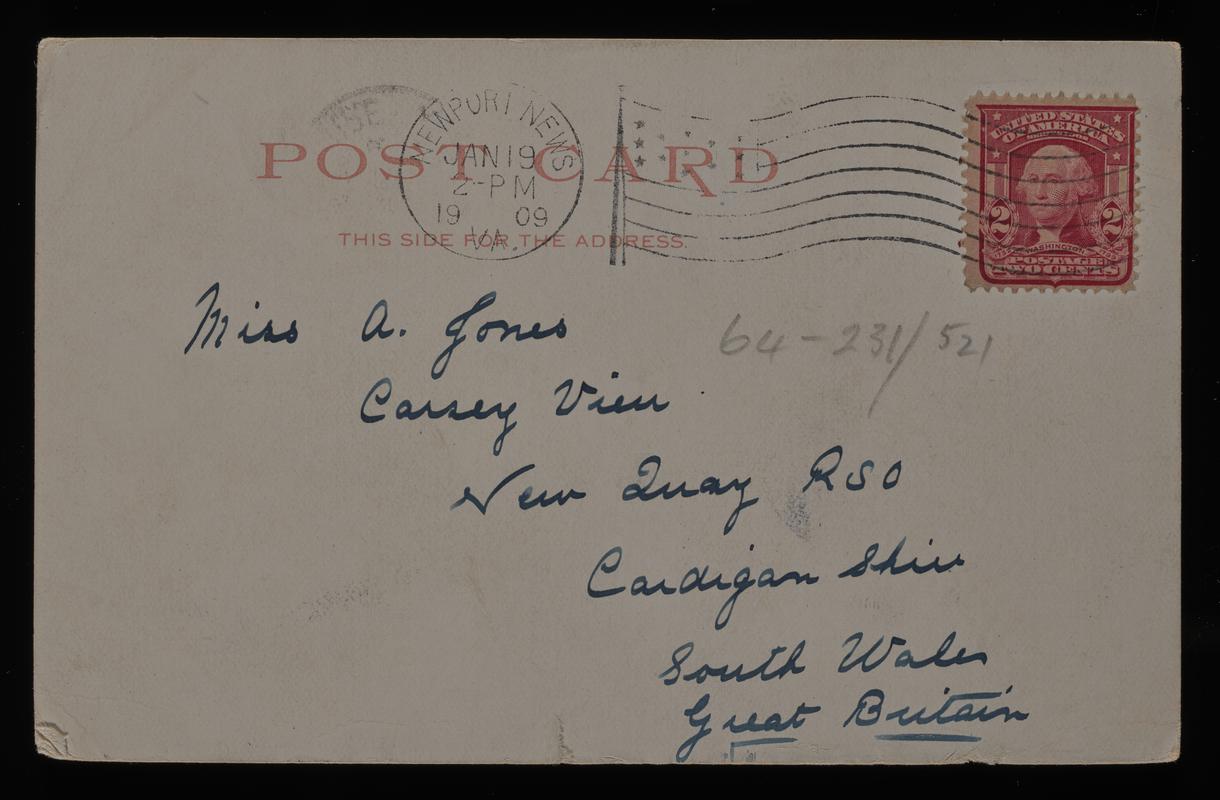 POST CARD
THIS SIDE FOR THE ADDRESS.
NEWPORT NEWS
JAN 19
2-PM
19 09
VA.
UNITED STATES
OF AMERICA
2 2
WASHINGTON
POSTAGE
TWO CENTS
Miss A. Jones
64-231/521
Carsey View
New Quay RSO
Cardigan Shire
South Wales
Great Britain